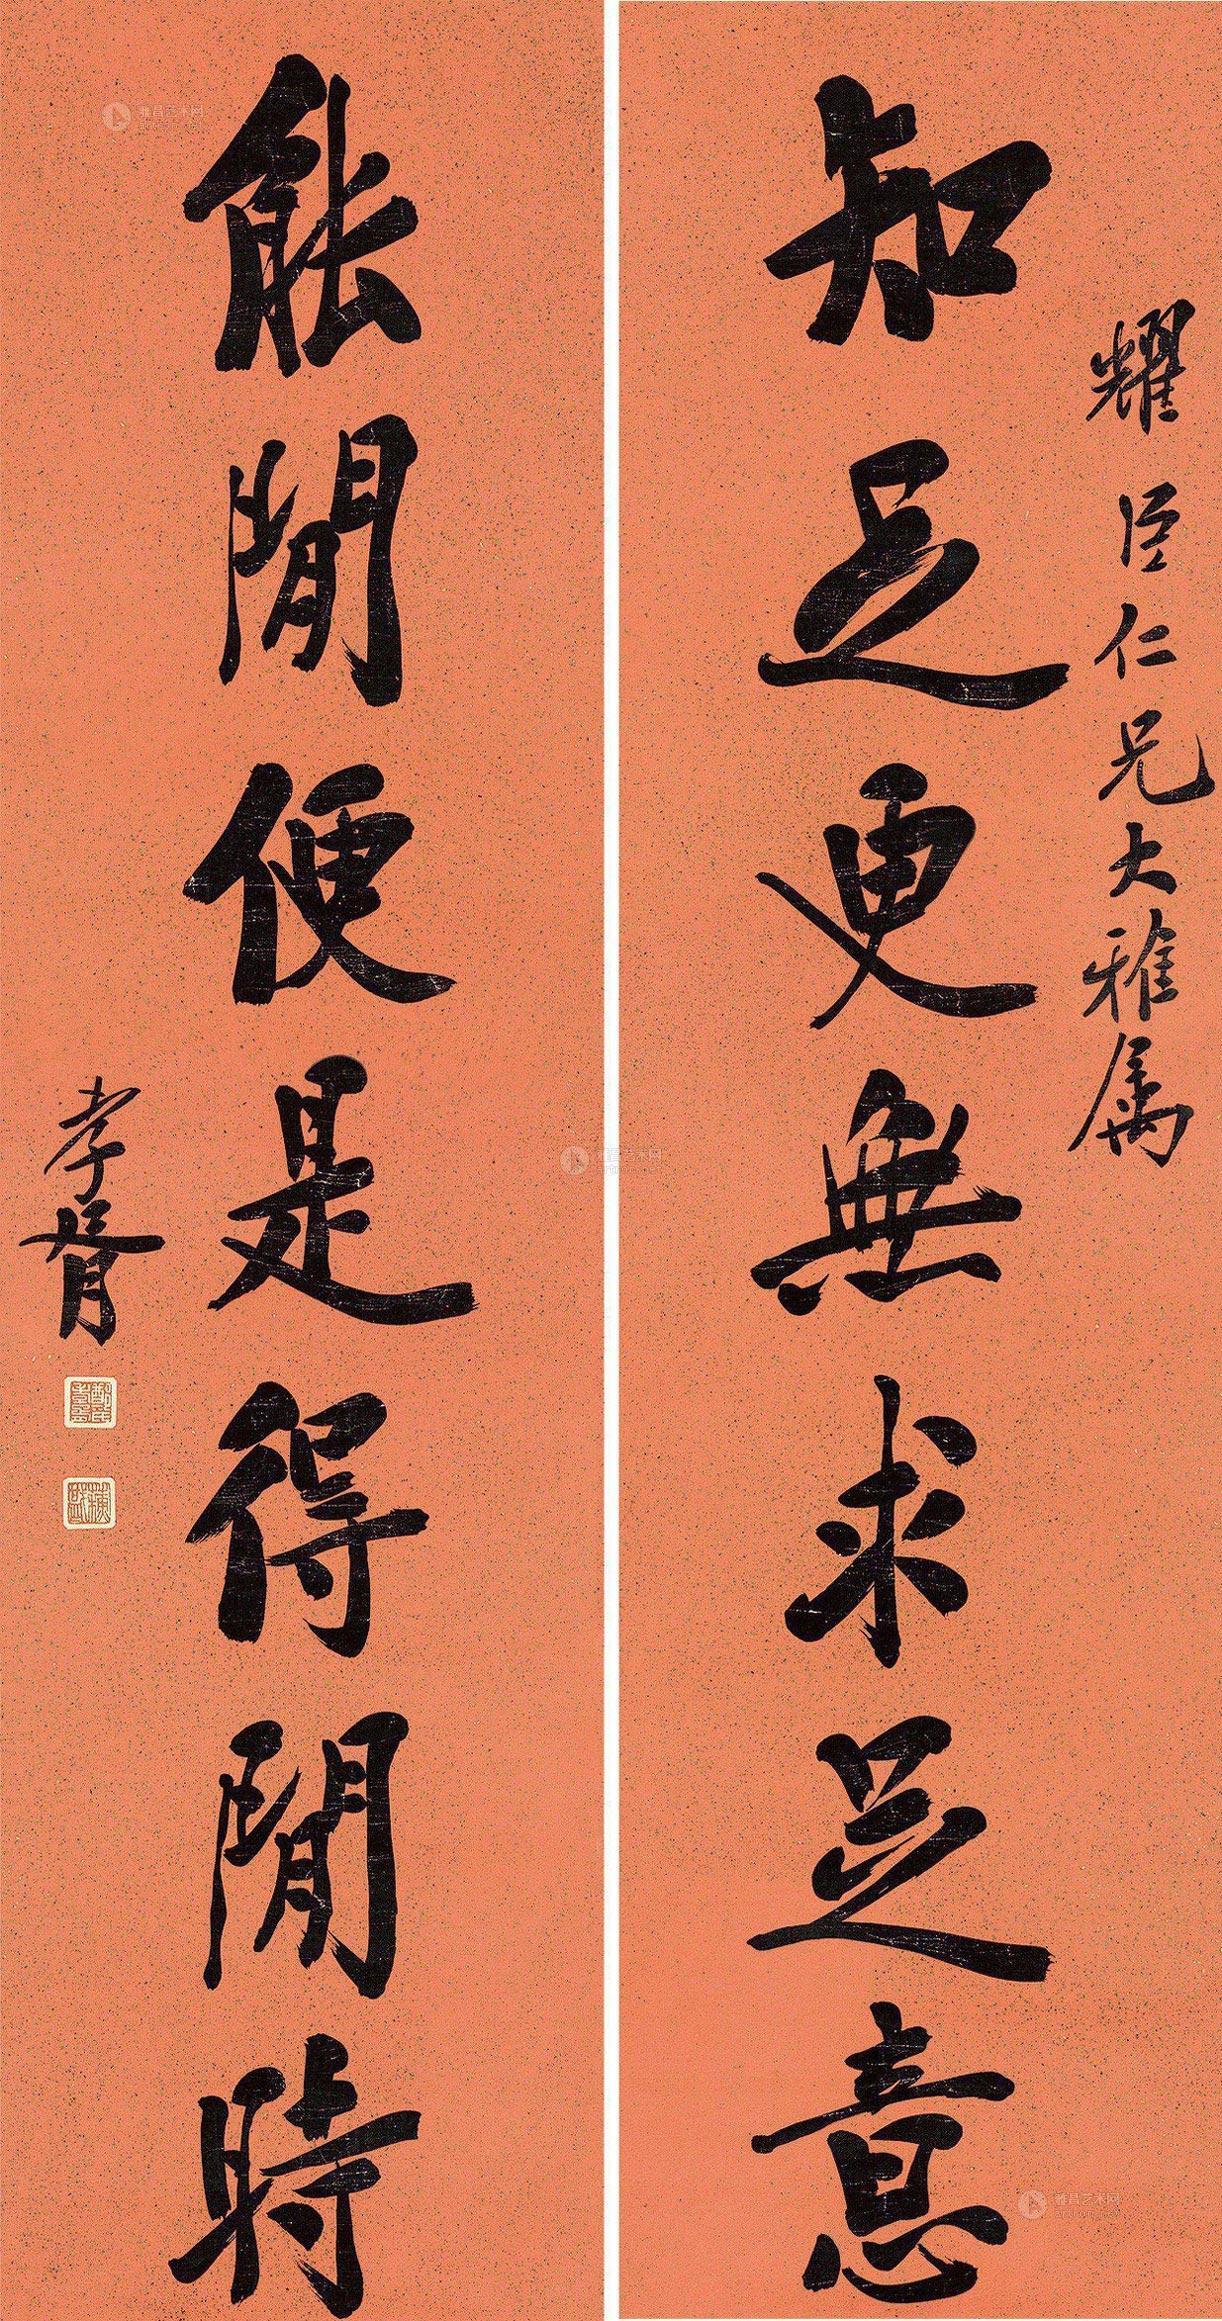 耀臣仁兄大雅属
知足更無求足意
能閒便是得閒時
孝胥
雅昌艺术网
雅昌艺术网
雅昌艺术网